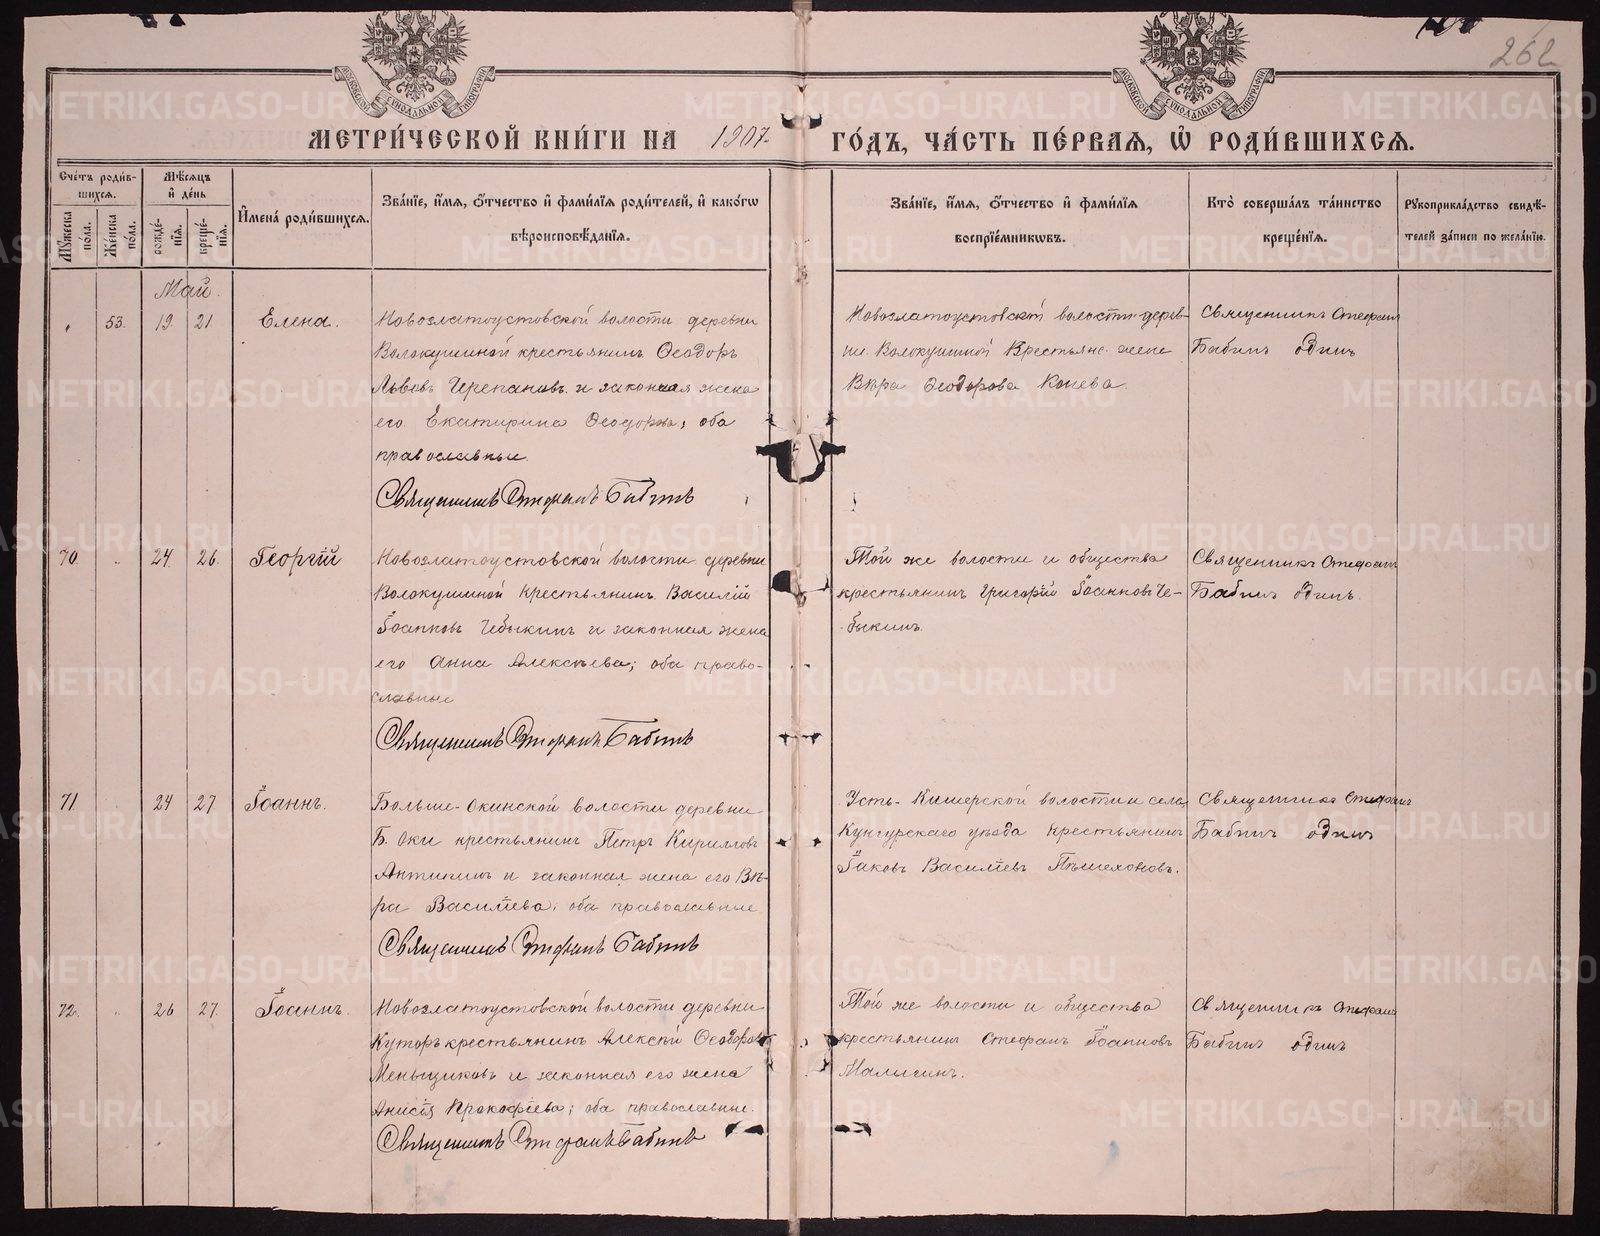 262
МОСКОВСКОЙ СѴНОДАЛЬНОЙ ТИПОГРАФІИ
МОСКОВСКОЙ СѴНОДАЛЬНОЙ ТИПОГРАФІИ
МЕТРИ́ЧЕСКОЙ КНИ́ГИ НА 1907 ГО́ДЪ, ЧА́СТЬ ПЕ́РВАЯ, Ѽ РОДИ́ВШИХСЯ.
Сче́тъ роди́в-
шихся.
Мѣ́сяцъ
и҆ де́нь
Му́жеска по́ла.
Же́нска по́ла.
рожде́нїя.
креще́нїя.
И҆мена̀ роди́вшихся.
Зва́нїе, и҆́мя, ѻ҆́тчество и҆ фами́лїя роди́телей, и҆ како́гѡ
вѣроисповѣ́данїя.
Зва́нїе, и҆́мя, ѻ҆́тчество и҆ фами́лїя
воспрїе́мникѡвъ.
Кто̀ соверша́лъ та́инство
креще́нїя.
Рꙋкоприкла́дство свидѣ́-
телей за́писи по жела́нїю.
Май.
53. 19. 21. Елена.
Новозлатоустовской волости деревни
Волокушиной крестьянинъ Ѳеодоръ
Львовъ Черепановъ и законная жена
его Екатирина Ѳеодорва, оба
православные.
Священникъ Стефанъ Бабинъ
Новозлатоустовской волости дерев-
ни Волокушиной Крестьянс. жена
Вѣра Ѳеодорова Конева.
Священникъ Стефанъ
Бабинъ одинъ
70. 24. 26. Георгій
Новозлатоустовской волости деревни
Волокушиной крестьянинъ Василій
Іоанновъ Чебыкинъ и законная жена
его Анна Алексѣева; оба право-
славные
Священникъ Стефанъ Бабинъ
Той же волости и общества
крестьянинъ Григорій Іоанновъ Че-
быкинъ.
Священникъ Стефанъ
Бабинъ одинъ.
71 24 27 Іоаннъ.
Больше-Окинской волости деревни
Б. Оки крестьянинъ Петръ Кирилловъ
Антипинъ и законная жена его Вѣ-
ра Васильева, оба православные
Священникъ Стефанъ Бабинъ
Усть-Кишерской волости и села
Кунгурскаго уѣзда крестьянинъ
Іаковъ Васильевъ Пѣшехоновъ.
Священникъ Стефанъ
Бабинъ одинъ
72. 26 27. Іоаннъ.
Новозлатоустовской волости деревни
Куторъ крестьянинъ Алексѣй Ѳеодоровъ
Меньщиковъ и законная его жена
Анисія Прокофіева; оба православные.
Священникъ Стефанъ Бабинъ
Той же волости и общества
крестьянинъ Стефанъ Іоанновъ
Малыгинъ.
Священникъ Стефанъ
Бабинъ одинъ
METRIKI.GASO-URAL.RU